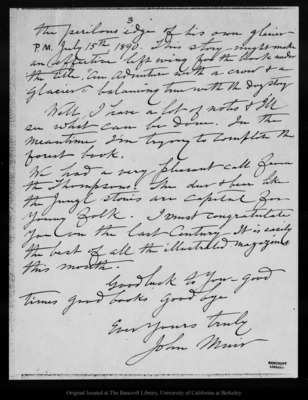 3
the perilous edge of his own glacier
P.M. July 15th 1890. This story might make
an effective left wing for the book under
the title "An Adventure with a crow & a
Glacier" balancing time with the dog story
Well, I have a lot of notes & Ill
see what can be done. In the
meantime, I'm trying to complete the
forest book.
We had a very pleasant call from
the Thompsons. The deer & bear like
the Jungle stories are capital for
young folk. I must congratulate
you on the last Century. It is easily
the best of all the illustrated magazines
this month.
Good luck to You good
times good books Good bye
Ever Yours truly
John Muir
BANCROFT
LIBRARY
Original located at The Bancroft Library, University of California at Berkeley